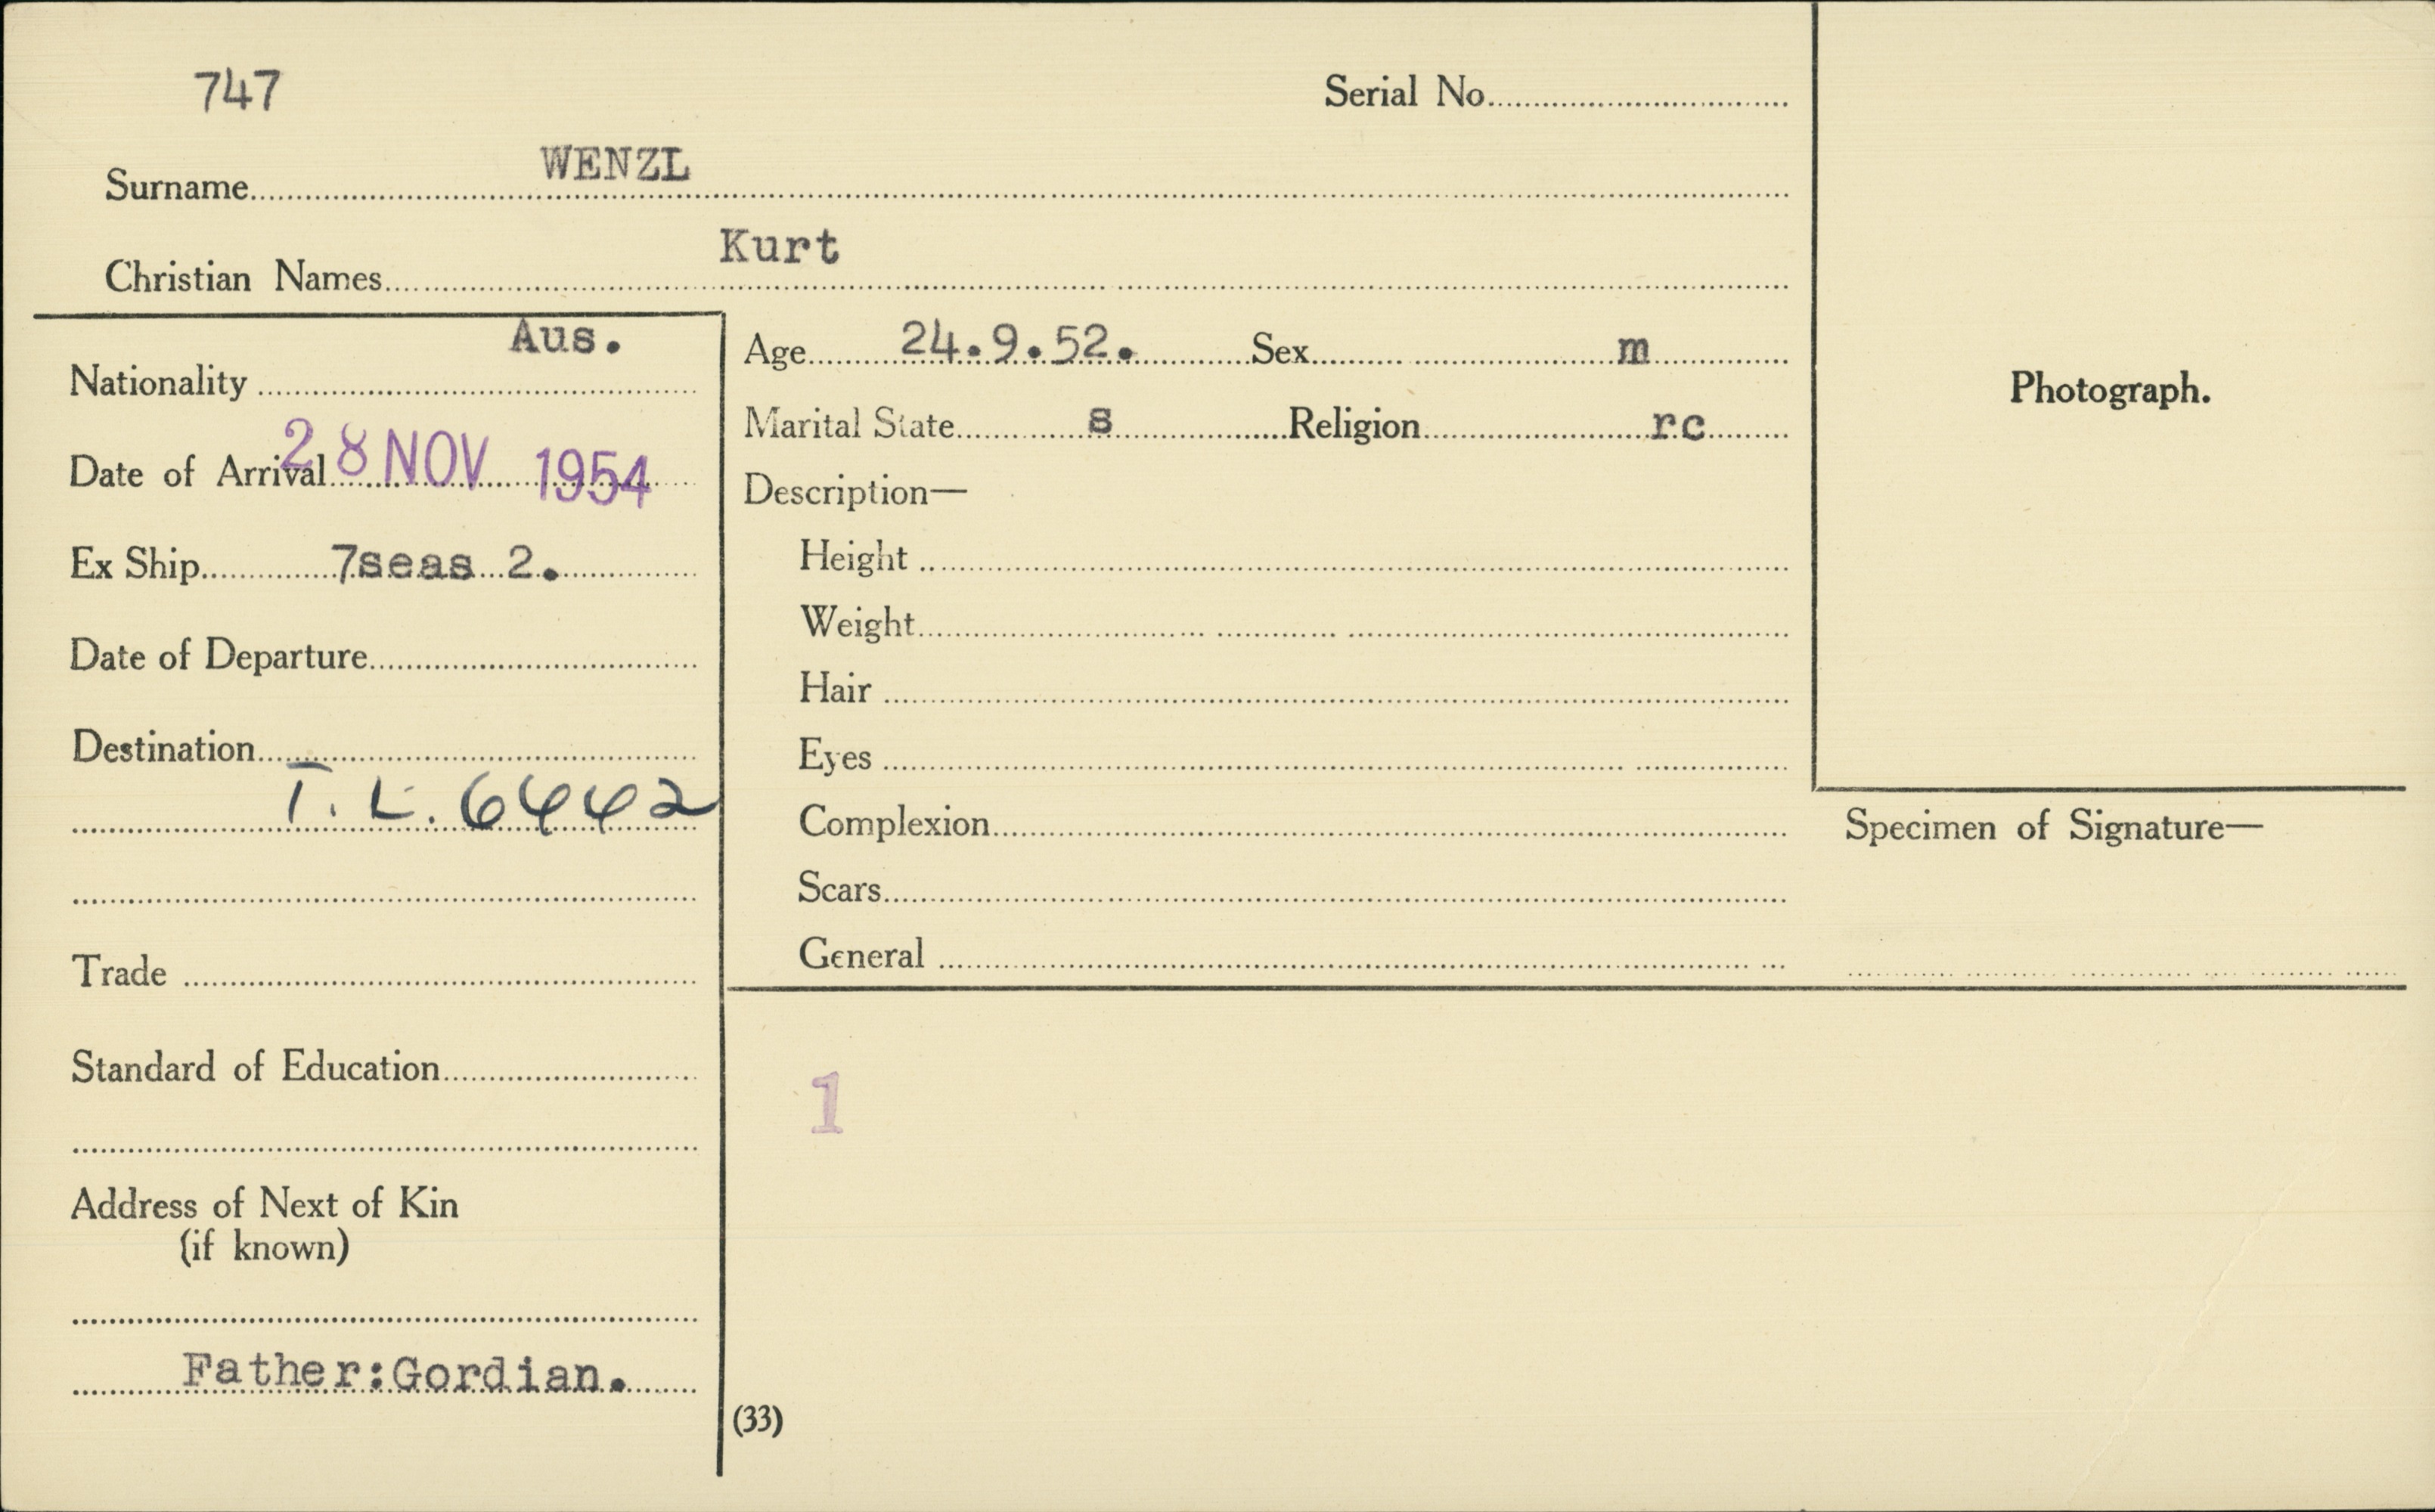 747
Serial No.
WENZL
Surname
Kurt
Christian Names
Aus.
Nationality
Date of Arrival 28 NOV 1954
Ex Ship 7seas 2.
Date of Departure
Destination
T. L. 6442
Trade
Standard of Education
Address of Next of Kin
(if known)
Father:Gordian.
Age 24.9.52. Sex m
Marital State s Religion rc
Description—
Height
Weight
Hair
Eyes
Complexion
Scars
General
1
(33)
Photograph.
Specimen of Signature—